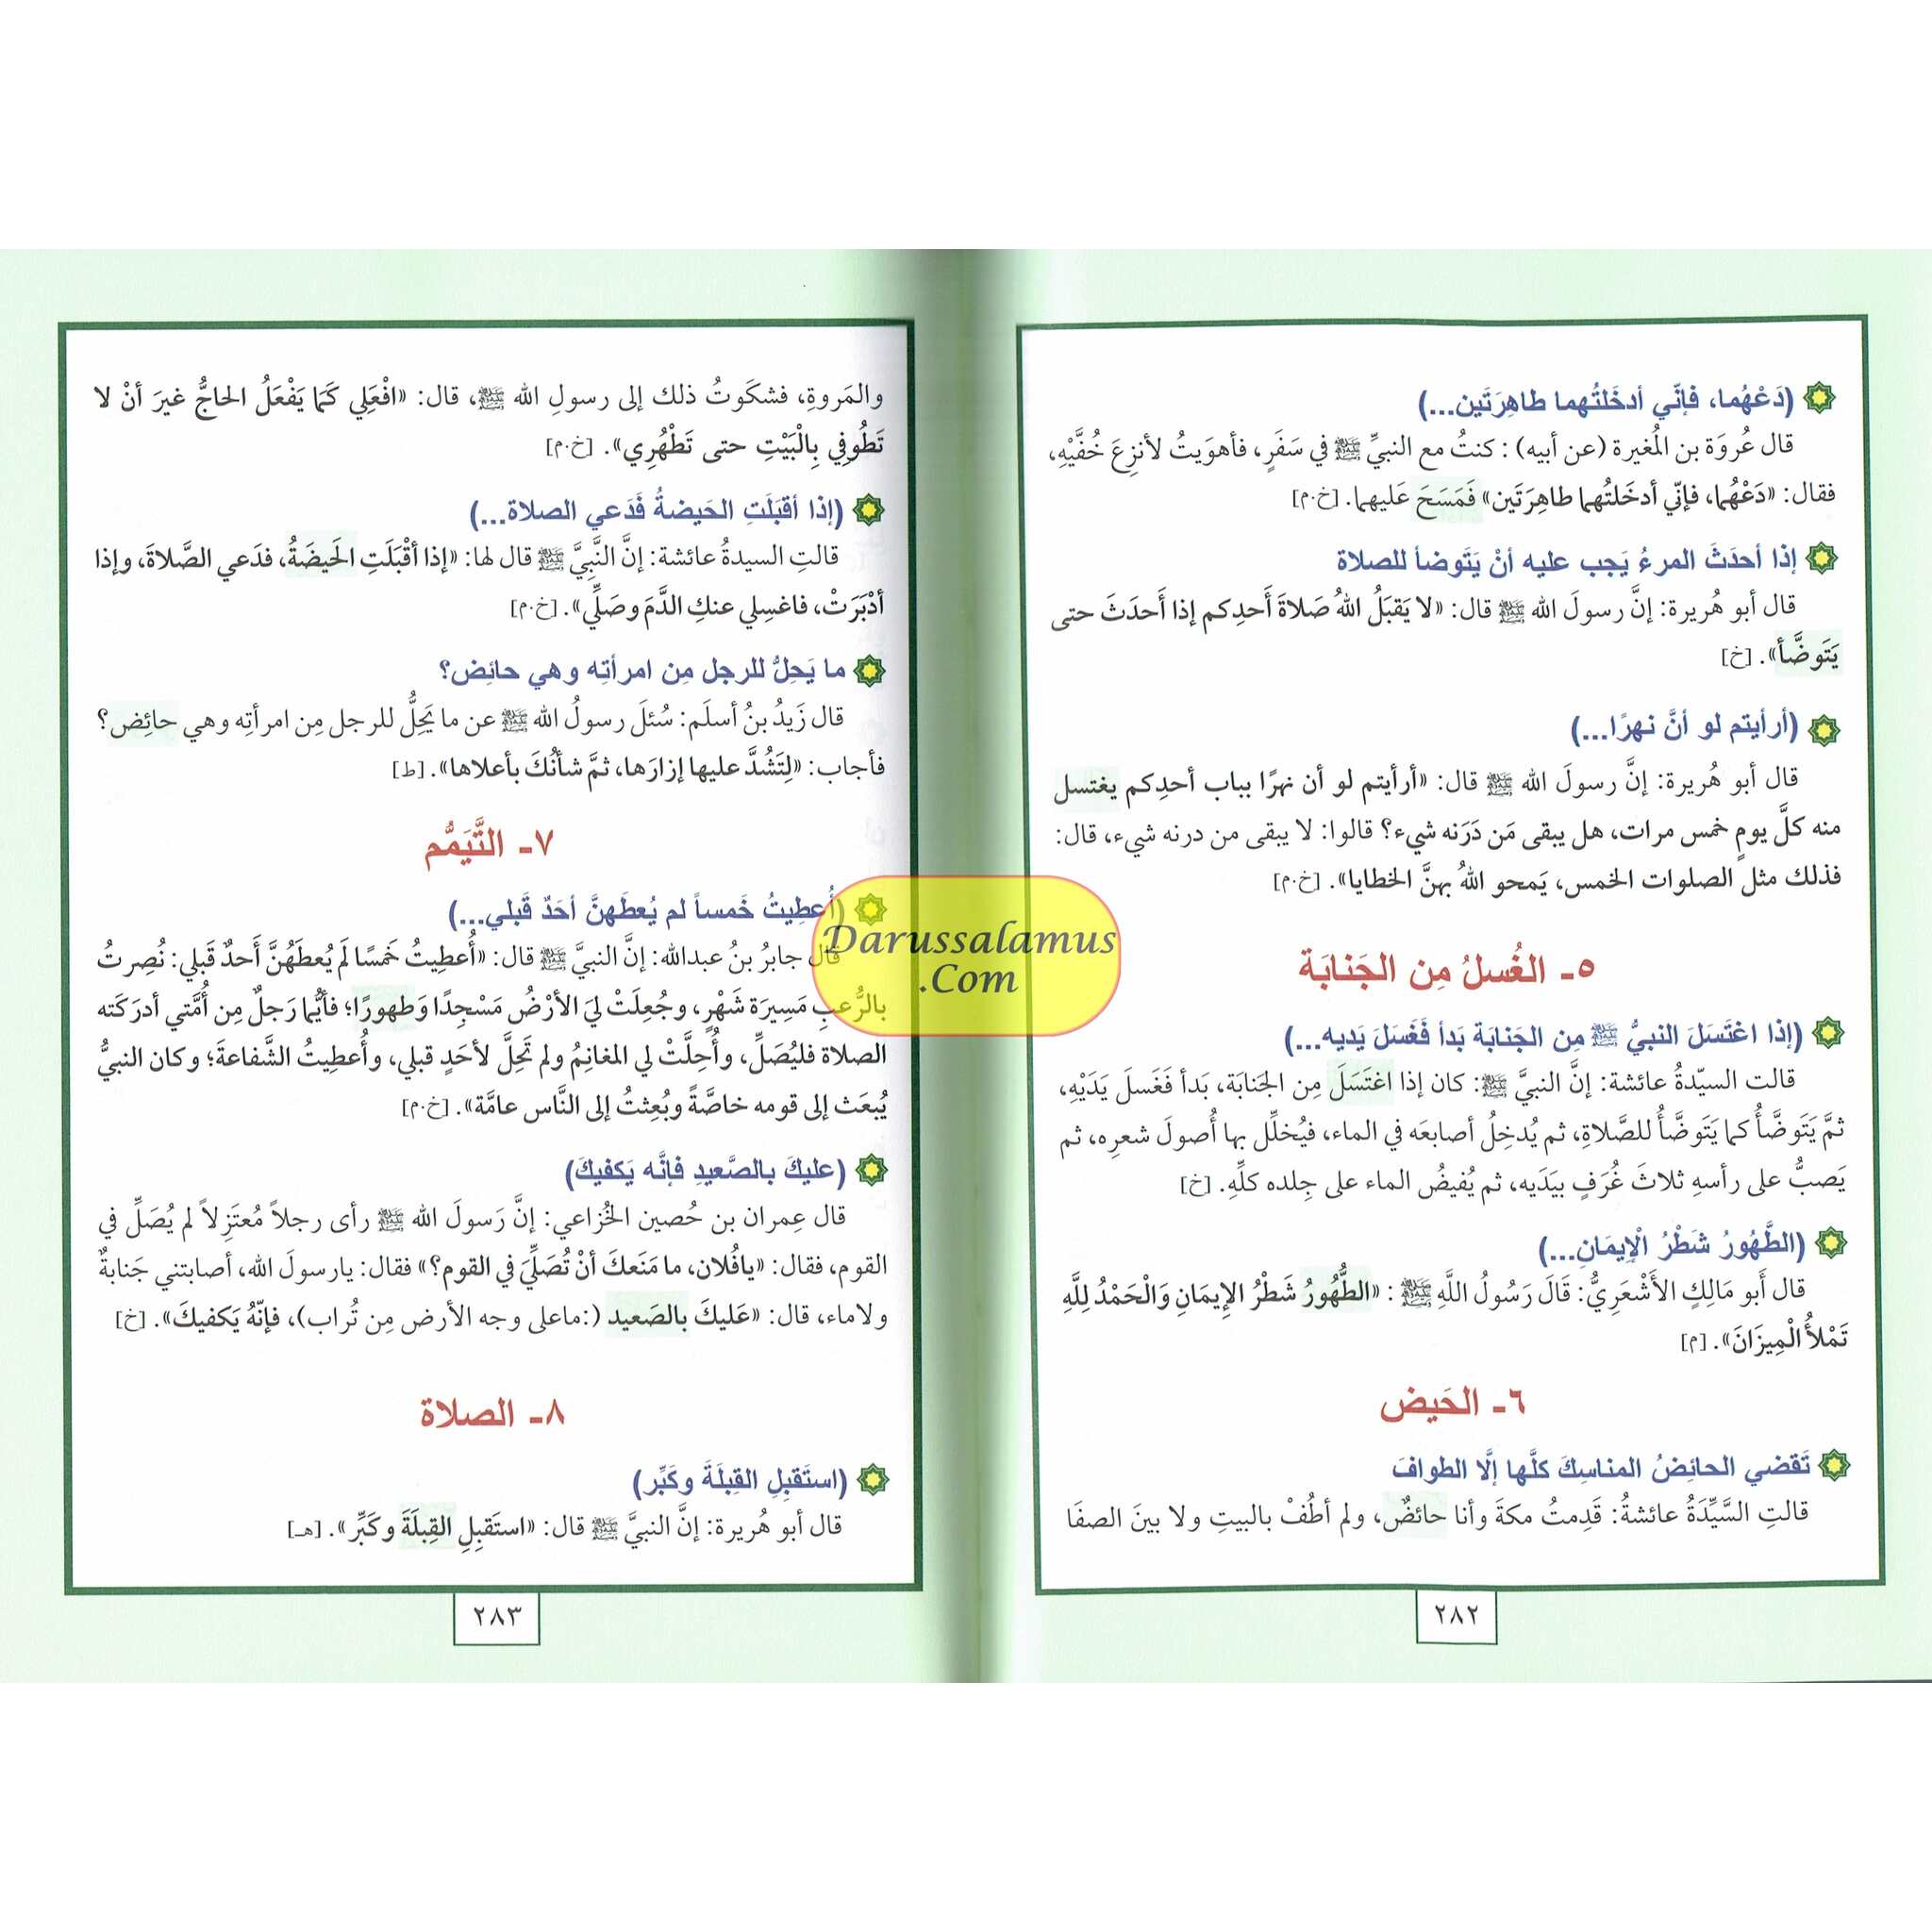 (دَعْهُما، فَإنّي أدخَلتُهما طاهِرَتَين...)
قال عُروَة بن المُغيرة (عن أبيه) : كنتُ مع النبيِّ ﷺ في سَفَرٍ، فأهوَيتُ لأنزِعَ خُفَّيْهِ،
فقال: «دَعْهُما، فإنّي أدخَلتُهما طاهِرَتَين» فَمَسَحَ عَليهما. [خ.م]
إذا أحدَثَ المرءُ يَجب عليه أنْ يَتَوضأ للصلاة
قال أبو هُريرة: إنَّ رسولَ الله ﷺ قال: «لا يَقبَلُ اللهُ صَلاةَ أَحدِكم إذا أَحدَثَ حتى
يَتَوضَّأ». [خ]
(أرأيتم لو أنَّ نهرًا...)
قال أبو هُريرة: إنَّ رسولَ الله ﷺ قال: «أرأيتم لو أن نهرًا بباب أحدِكم يغتسل
منه كلَّ يومٍ خمس مرات، هل يبقى مَن دَرَنه شيء؟ قالوا: لا يبقى من درنه شيء، قال:
فذلك مثل الصلوات الخمس، يَمحو اللهُ بهنَّ الخطايا». [خ.م]
٥- الغُسلُ مِن الجَنابَة
(إذا اغتَسَلَ النبيُّ ﷺ مِن الجَنابَة بَدأ فَغَسَلَ يَديه...)
قالت السيّدةُ عائشة: إنَّ النبيَّ ﷺ: كان إذا اغتَسَلَ مِن الجَنابَة، بَدأ فَغَسلَ يَدَيْهِ،
ثمَّ يَتَوضَّأُ كما يَتَوضَّأُ للصَّلاةِ، ثم يُدخِلُ أصابعَه في الماء، فيُخلِّل بها أُصولَ شعرِه، ثم
يَصبُّ على رأسهِ ثلاثَ غُرَفٍ بيَدَيه، ثم يُفيضُ الماء على جِلده كلِّهِ. [خ]
(الطَّهُورُ شَطْرُ الْإيمَانِ...)
قال أَبو مَالِكٍ الأَشْعَرِيُّ: قَالَ رَسُولُ اللَّهِ ﷺ : «الطُّهُورُ شَطْرُ الإِيمَانِ وَالْحَمْدُ لِلَّهِ
تَمْلأُ الْمِيزَانَ». [م]
٦- الحَيض
تَقضي الحائِضُ المناسِكَ كلَّها إلَّا الطوافَ
قالتِ السَّيِّدَةُ عائشةُ: قَدِمتُ مكةَ وأنا حائضٌ، ولم أطُفْ بالبيتِ ولا بينَ الصفَا
٢٨٢
والمَروةِ، فشكَوتُ ذلك إلى رسولِ الله ﷺ، قال: «افْعَلِي كَمَا يَفْعَلُ الحاجُّ غيرَ أنْ لا
تَطُوفِي بِالْبَيْتِ حتى تَطْهُرِي». [خ.م]
(إذا أقبَلَتِ الحَيضةُ فَدَعي الصلاة...)
قالتِ السيدةُ عائشة: إنَّ النَّبِيَّ ﷺ قال لها: «إذا أقْبَلَتِ الحَيضَةُ، فدَعي الصَّلاةَ، وإذا
أدْبَرَتْ، فاغسِلي عنكِ الدَّمَ وصَلِّي». [خ.م]
ما يَحِلُّ للرجل مِن امرأتِه وهي حائِض؟
قال زَيدُ بنُ أسلَم: سُئلَ رسولُ الله ﷺ عن ما يَحِلُّ للرجل مِن امرأتِه وهي حائِض؟
فأجاب: «لِتَشُدَّ عليها إزارَها، ثمَّ شأنُكَ بأعلاها». [ط]
٧- التَّيَمُّم
(أُعطِيتُ خَمساً لم يُعطَهنَّ أحَدٌ قَبلي...)
قال جابرُ بنُ عبدالله: إنَّ النبيَّ ﷺ قال: «أُعطِيتُ خَمسًا لَم يُعطَهُنَّ أَحدٌ قَبلي: نُصِرتُ
بالرُّعبِ مَسِيرَة شَهْرٍ، وجُعِلَتْ لِيَ الأرْضُ مَسْجِدًا وَطهورًا؛ فأيُّما رَجلٌ مِن أُمَّتي أدرَكَته
الصلاة فليُصَلِّ، وأُحِلَّتْ لي المغانِمُ ولم تَحِلَّ لأحَدٍ قبلي، وأُعطِيتُ الشَّفاعةَ؛ وكان النبيُّ
يُبعَث إلى قومه خاصَّةً وبُعِثتُ إلى النَّاس عامَّة». [خ.م]
(عليكَ بالصَّعيدِ فإنَّه يَكفيكَ)
قال عِمران بن حُصين الخُزاعي: إنَّ رَسولَ الله ﷺ رأى رجلاً مُعتَزِلاً لم يُصَلِّ في
القوم، فقال: «يافُلان، ما مَنَعكَ أنْ تُصَلِّيَ في القوم؟» فقال: يارسولَ الله، أصابتني جَنابةٌ
ولاماء، قال: «عَليكَ بالصَعيد (:ماعلى وجه الأرض مِن تُراب)، فإنّهُ يَكفيكَ». [خ]
٨- الصلاة
(استَقبِلِ القِبلَةَ وكَبِّر)
قال أبو هُريرة: إنَّ النبيَّ ﷺ قال: «استَقبِلِ القِبلَةَ وكَبِّر». [هـ]
٢٨٣
Darussalamus
.Com